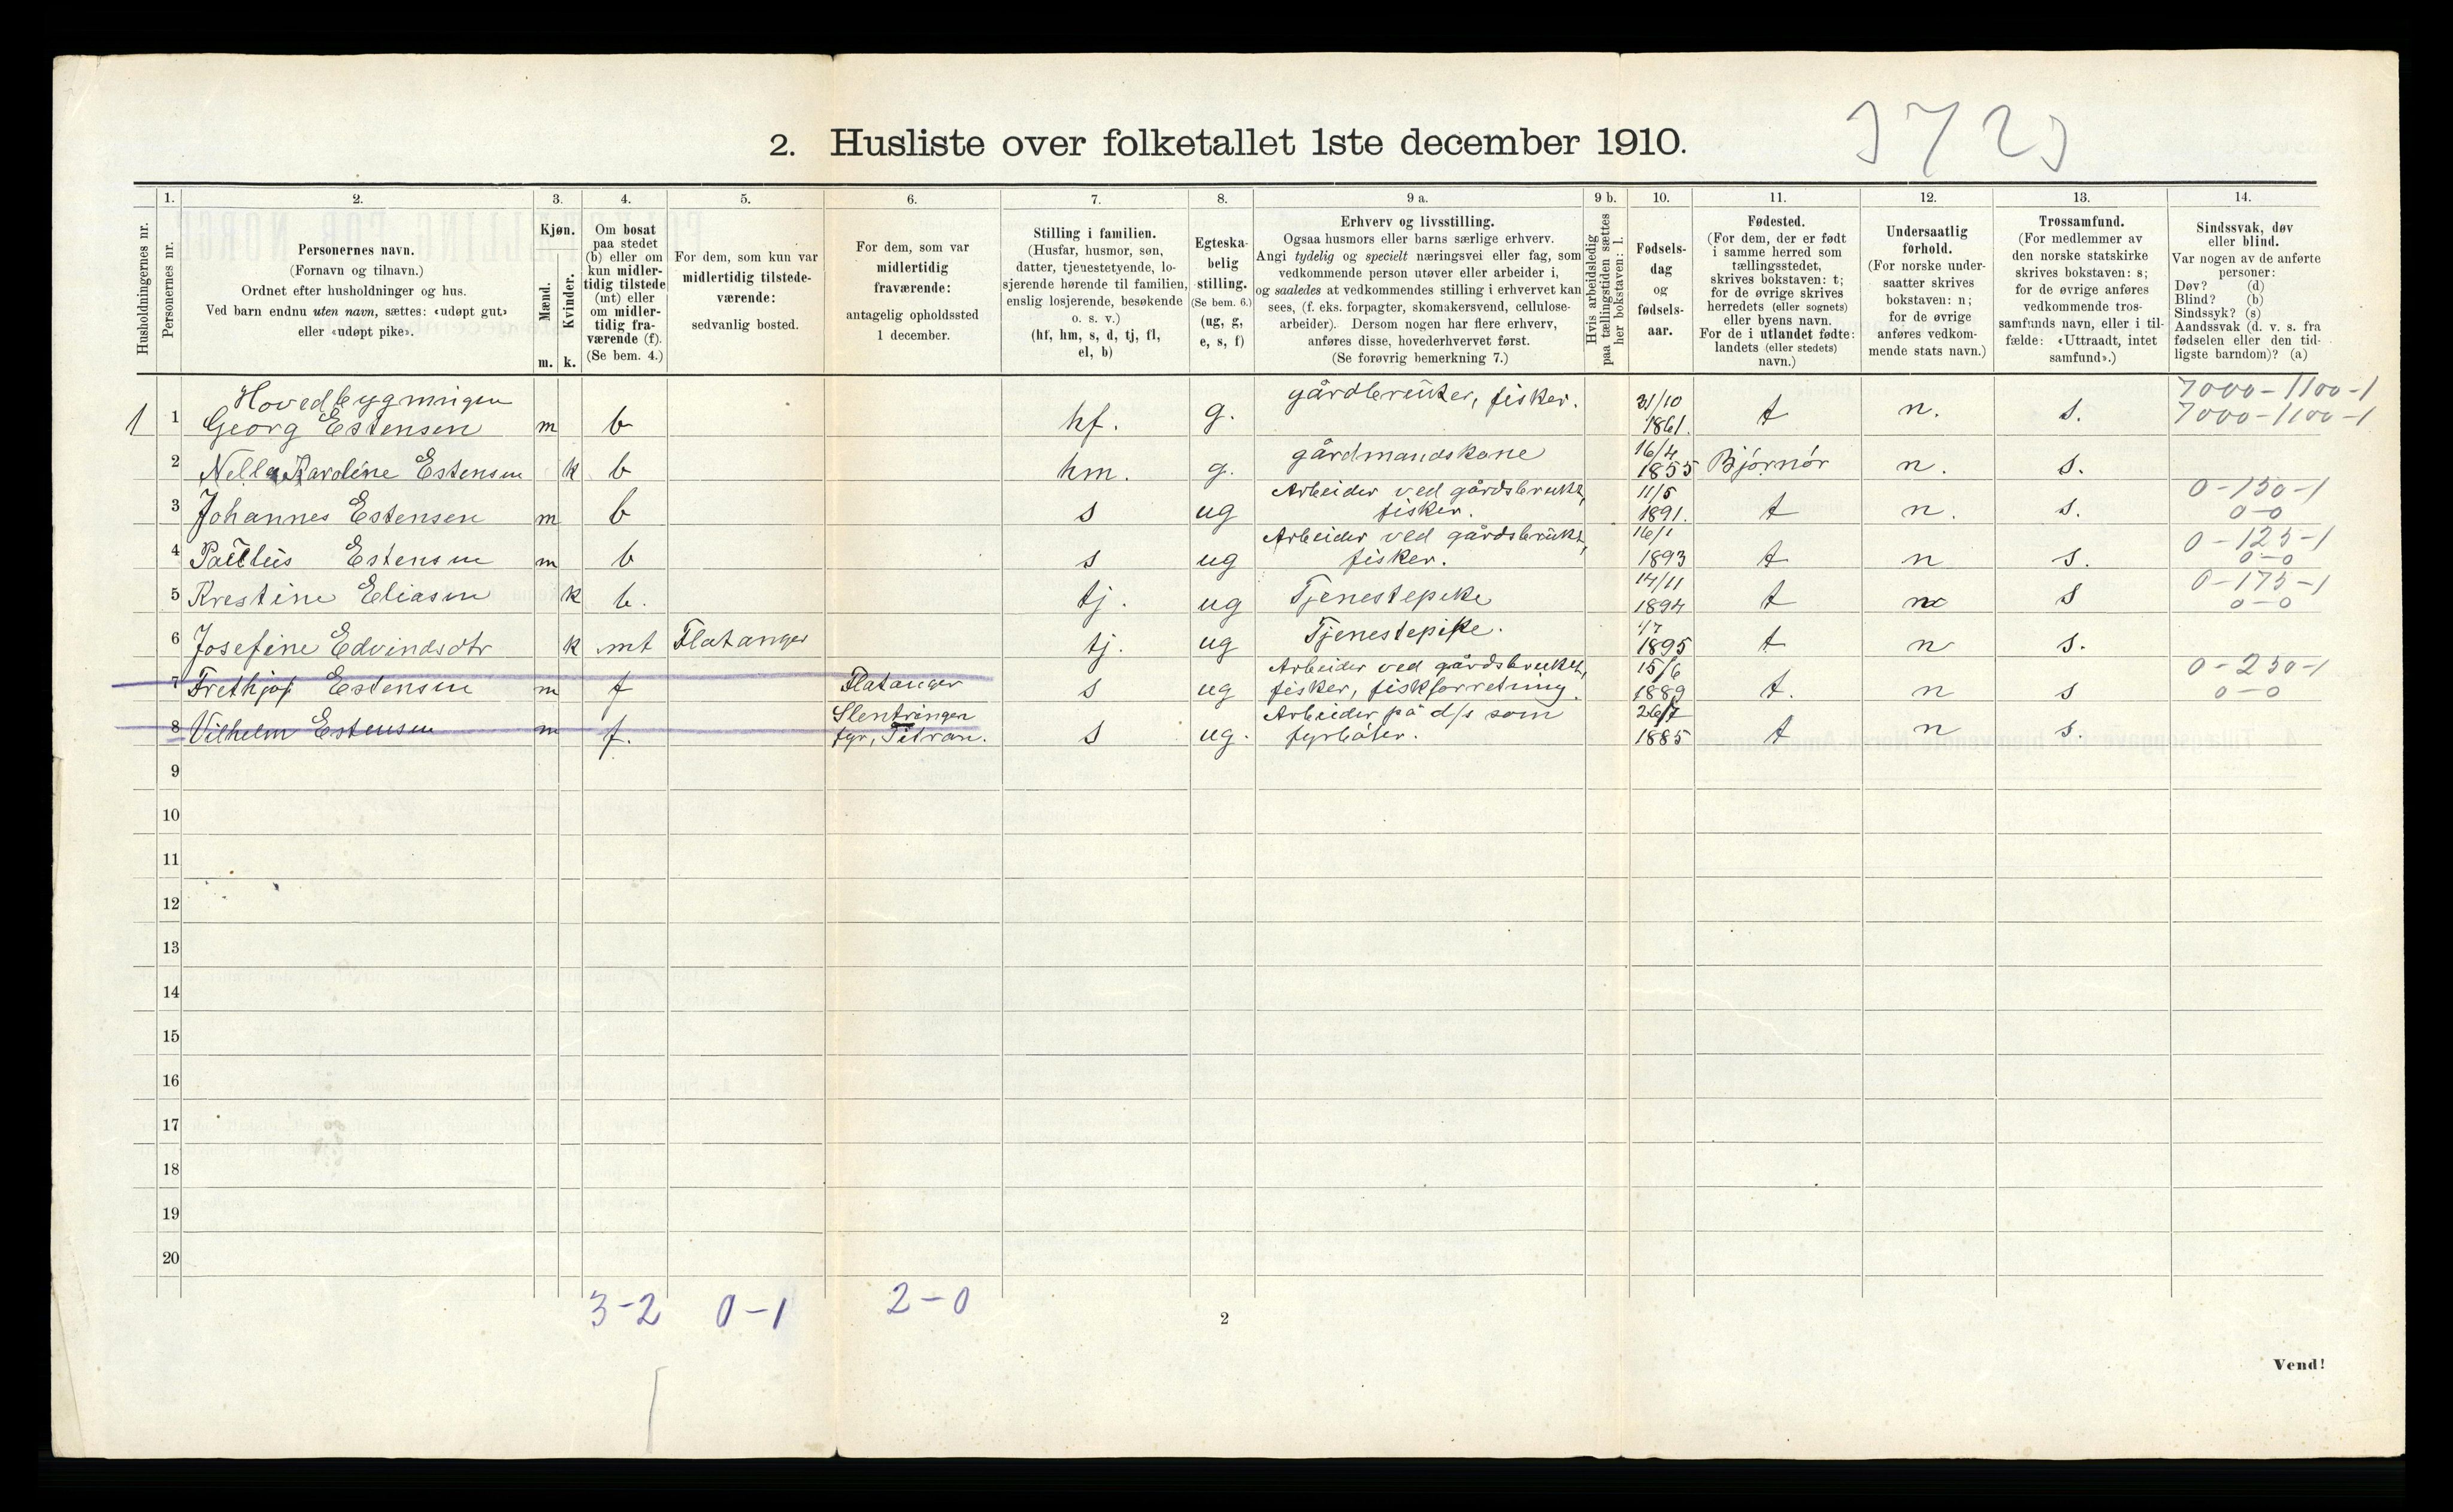 2. Husliste over folketallet 1ste december 1910.
Husholdningernes nr.
1.
Personernes nr.
2.
Personernes navn.
(Fornavn og tilnavn.)
Ordnet efter husholdninger og hus.
Ved barn endnu uten navn, sættes: «udøpt gut»
eller «udøpt pike».
3.
Kjøn.
Mænd.
Kvinder.
m. k.
4.
Om bosat
paa stedet
(b) eller om
kun midler-
tidig tilstede
(mt) eller
om midler-
tidig fra-
værende (f).
(Se bem. 4.)
5.
For dem, som kun var
midlertidig tilstede-
værende:
sedvanlig bosted.
6.
For dem, som var
midlertidig
fraværende:
antagelig opholdssted
1 december.
7.
Stilling i familien.
(Husfar, husmor, søn,
datter, tjenestetyende, lo-
sjerende hørende til familien,
enslig losjerende, besøkende
o. s. v.)
(hf, hm, s, d, tj, fl,
el, b)
8.
Egteska-
belig
stilling.
(Se bem. 6.)
(ug, g,
e, s, f)
9 a.
Erhverv og livsstilling.
Ogsaa husmors eller barns særlige erhverv.
Angi tydelig og specielt næringsvei eller fag, som
vedkommende person utøver eller arbeider i,
og saaledes at vedkommendes stilling i erhvervet kan
sees, (f. eks. forpagter, skomakersvend, cellulose-
arbeider). Dersom nogen har flere erhverv,
anføres disse, hovederhvervet først.
(Se forøvrig bemerkning 7.)
9 b.
Hvis arbeidsledig
paa tællingstiden sættes
her bokstaven: l.
10.
Fødsels-
dag
og
fødsels-
aar.
11.
Fødested.
(For dem, der er født
i samme herred som
tællingsstedet,
skrives bokstaven: t;
for de øvrige skrives
herredets (eller sognets)
eller byens navn.
For de i utlandet fødte:
landets (eller stedets)
navn.)
12.
Undersaatlig
forhold.
(For norske under-
saatter skrives
bokstaven: n;
for de øvrige
anføres vedkom-
mende stats navn.)
13.
Trossamfund.
(For medlemmer av
den norske statskirke
skrives bokstaven: s;
for de øvrige anføres
vedkommende tros-
samfunds navn, eller i til-
fælde: «Uttraadt, intet
samfund».)
14.
Sindssvak, døv
eller blind.
Var nogen av de anførte
personer:
Døv? (d)
Blind? (b)
Sindssyk? (s)
Aandssvak (d. v. s. fra
fødselen eller den tid-
ligste barndom)? (a)
Hovedbygningen
7000-1100-1
1 1 Georg Estensen m b hf. g. gårdbruker, fisker. 31/10 1861. t n. s. 7000-1100-1
2 Nella Karoline Estensen k b hm. g. gårdmandskone 16/4 1855 Bjørnør n. s.
3 Johannes Estensen m b s ug Arbeider ved gårdsbruket, fisker. 11/5 1891. t n. s. 0-150-1 0-0
4 Paulus Estensen m b s ug Arbeider ved gårdsbruket, fisker. 16/1 1893 t n s. 0-125-1 0-0
5 Krestine Eliasen k b. tj. ug Tjenestepike 14/11 1894 t n s 0-175-1 0-0
6 Josefine Edvindsdtr k mt Flatanger tj. ug Tjenestepike. 1/7 1895 t n s.
7 Frethjof Estensen m f Flatanger s ug Arbeider ved gårdsbruket, fisker, fiskforretning. 15/6 1889 t. n s 0-250-1 0-0
8 Vilhelm Estensen m f. Slentringen fyr, Titran. s ug. Arbeider på d/s som fyrbøter. 26/7 1885 t n s.
9
10
11
12
13
14
15
16
17
18
19
20
3-2 0-1 2-0
2
Vend!